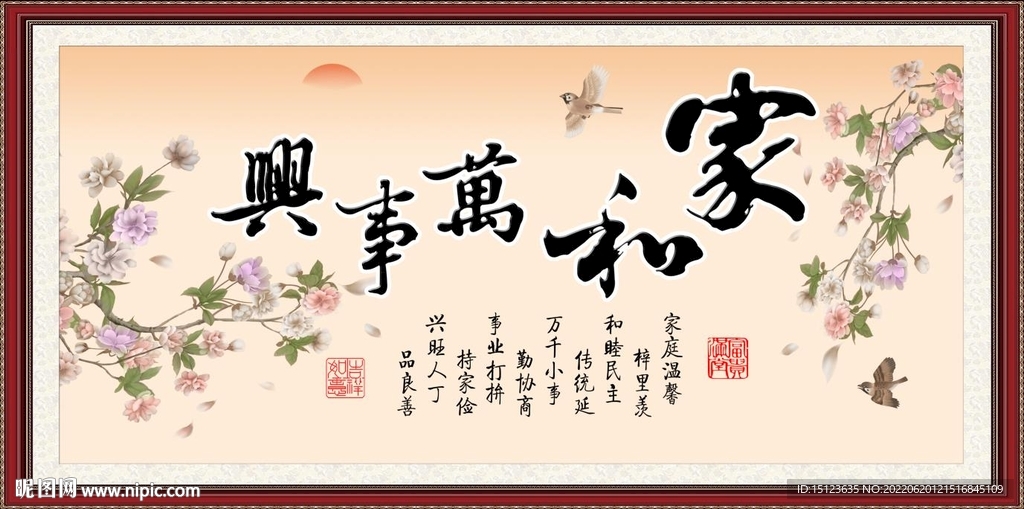 家和萬事興
家庭温馨
梓里羡
和睦民主
传统延
万千小事
勤协商
事业打拚
持家俭
兴旺人丁
品良善
富貴滿堂
吉祥如意
昵图网 www.nipic.com
ID:15123635 NO:20220620121516845109